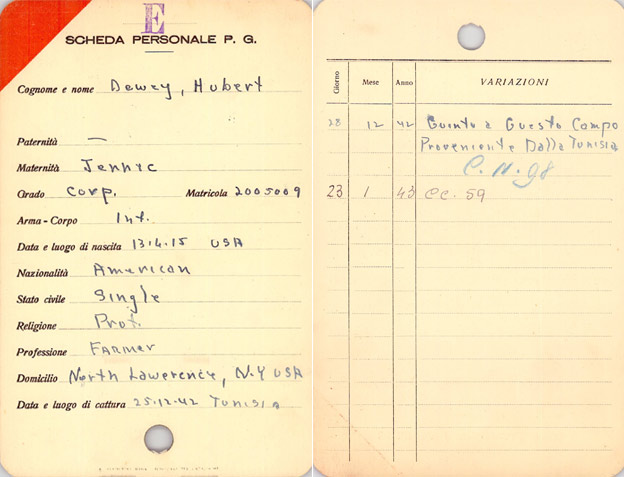 E
SCHEDA PERSONALE P. G.
Cognome e nome Dewey, Hubert
Paternità —
Maternità Jennie
Grado Corp. Matricola 2005009
Arma - Corpo Inf.
Data e luogo di nascita 13.4.15 USA
Nazionalità American
Stato civile Single
Religione Prot.
Professione FARMER
Domicilio North Lawerence, N.Y USA
Data e luogo di cattura 25.12.42 TUNISIA
Giorno Mese Anno VARIAZIONI
28 12 42 Giunto a Questo Campo
Proveniente Dalla TUNISIA
C. N. 98
23 1 43 CC. 59